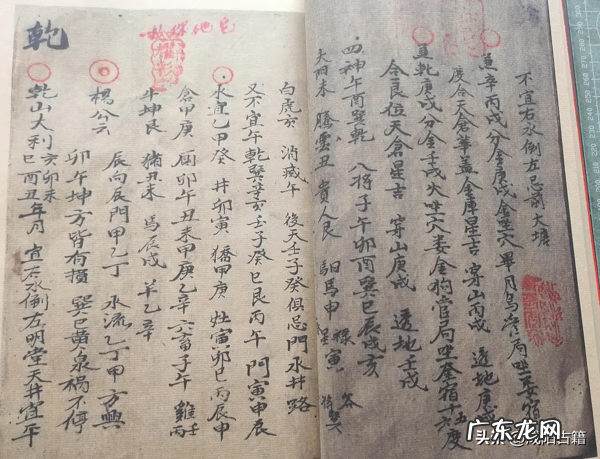 不宜右水倒左忌前大塘
辛丙戌分金庚戌金坐穴畢月烏管局坐婁宿
度合天倉華蓋金庫星吉穿山丙戌透地庚戌
乾庚戌分金壬戌火坐穴婁金狗官局坐奎宿十六度
合艮位天倉定吉穿山庚戌透地壬戌
四神午酉巽乾八將子午卯酉巽巳辰戌亥
大門未騰雲丑貴人艮馹馬申祿寅
白虎亥消滅午後天壬子癸俱忌門水井路
又不宜午乾巽辛亥壬子癸巳艮丙午門寅申辰
水宜乙甲癸井卯寅猪甲庚灶寅卯巳丙辰申
倉甲庚廁卯午丑未甲庚乙辛六畜子午雞壬丙
牛坤艮猪丑未馬辰戌羊乙辛
楊公云辰向辰門甲乙丁水流乙丁甲方興
卯午坤方皆有損巽巳黄泉禍不停
乾山大利亥卯未巳酉丑年月宜右水倒左明堂天井宜午
乾
头条@咸阳古籍
广东龙网